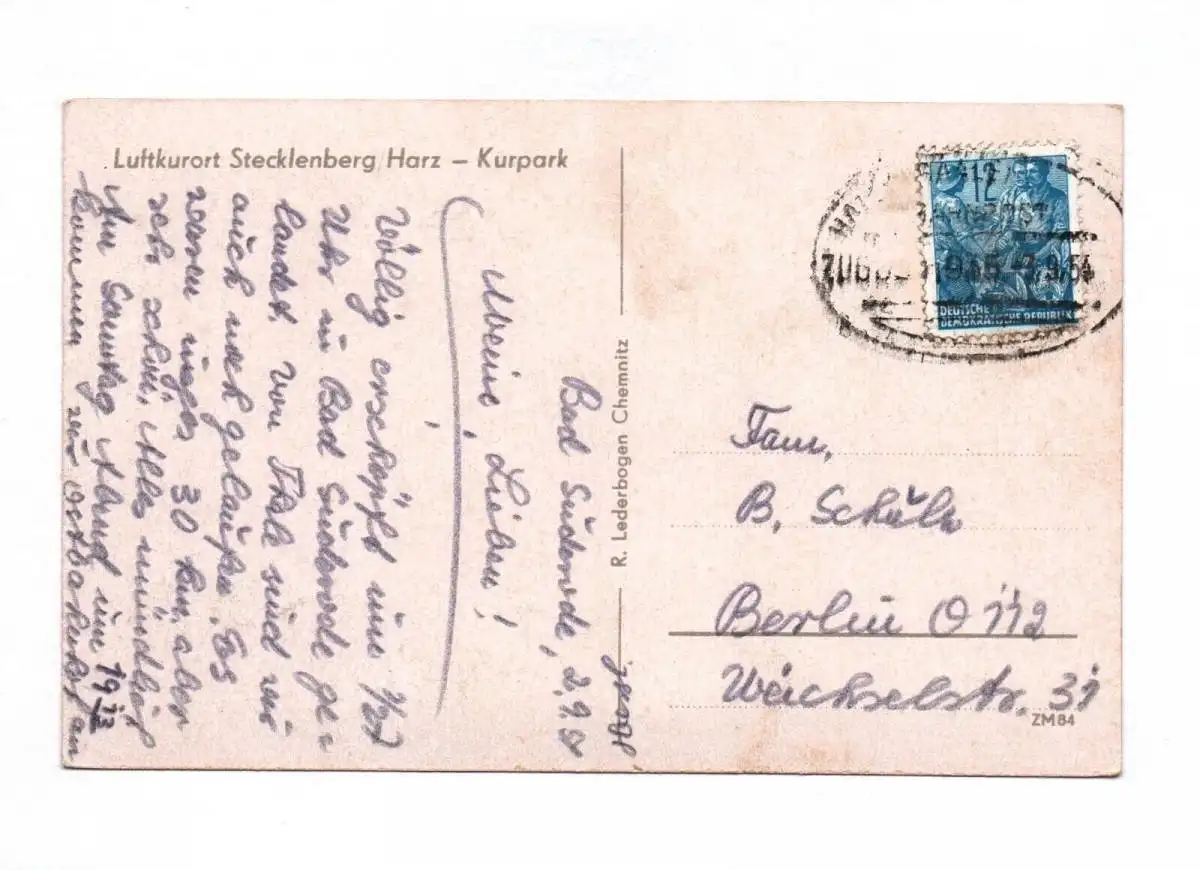 Luftkurort Stecklenberg/Harz – Kurpark
Bad Suderode, 2.9.54
Meine Lieben!
Völlig erschöpft um 1/27
Uhr in Bad Suderode ge-
landet. Von Thale sind wir
auch noch gelaufen. Es
waren insges. 30 km, aber
sehr schön. Alles mündlich
Am Samstag Abend um 19 13
kommen wir Ostbahnhof an
R. Lederbogen Chemnitz
12
DEUTSCHE
DEMOKRATISCHE REPUBLIK
BAHNPOST
ZUG
Fam.
B. Schülz
Berlin O 112
Weichselstr. 31
ZM84